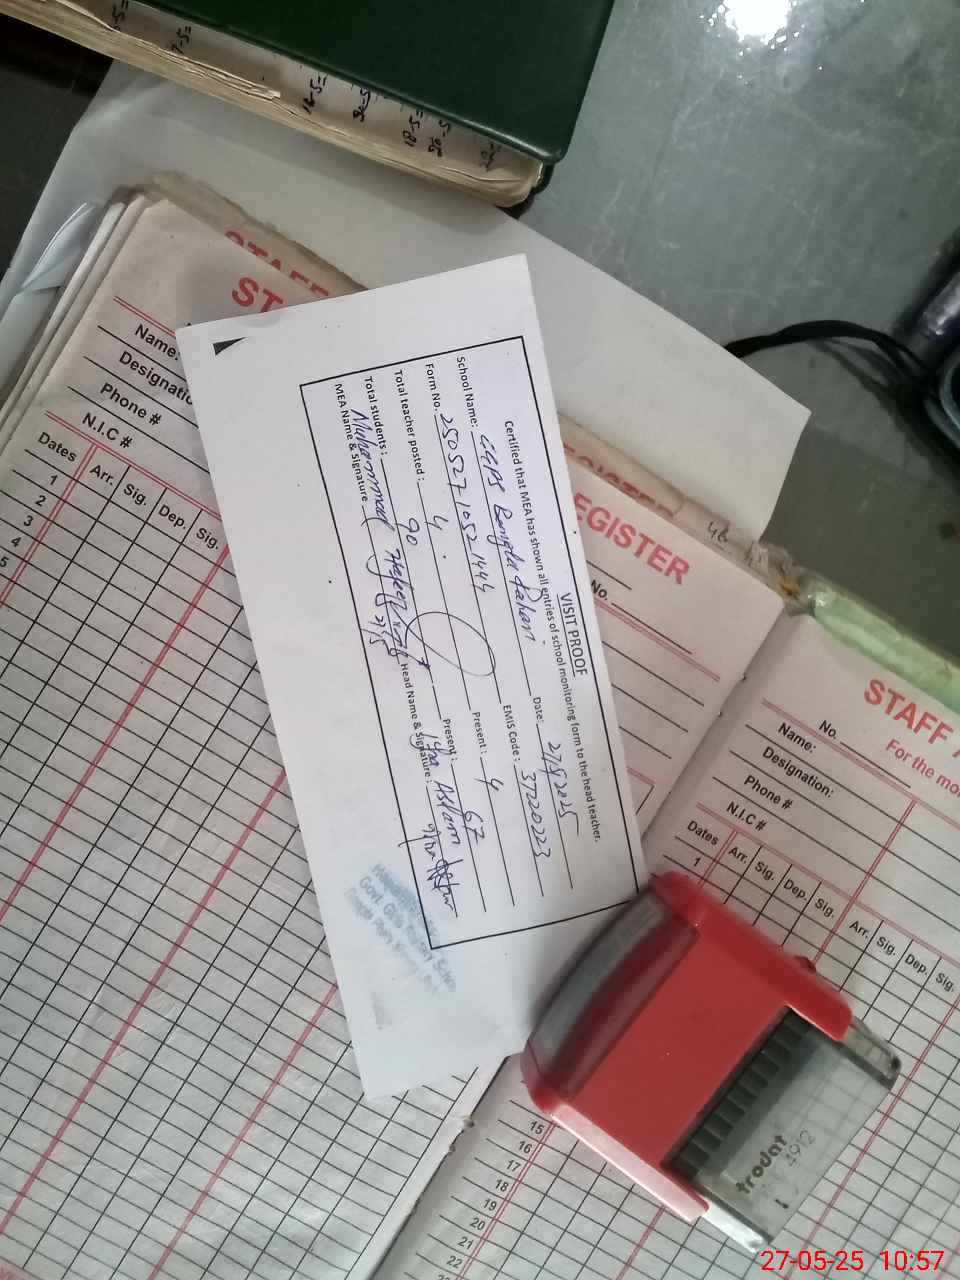 18-5=
32-5
18-5=
26-5
STAFF
ST
Name:
Designatio
Phone #
N.I.C #
Dates
Arr. Sig. Dep. Sig.
1
2
3
4
5
VISIT PROOF
Certified that MEA has shown all entries of school monitoring form to the head teacher.
School Name: GGPS Bangla Pahari Date: 27/5/2025
Form No. 25052710521444 EMIS Code: 37220223
Total teacher posted: 4 Present: 4
Total students: 90 Present: 67
MEA Name & Signature Muhammad 27/5 Head Name & Signature: Aslam
Govt. Girls Primary School
REGISTER
EGISTER
No.
46
STAFF A
For the mo
No.
Name:
Designation:
Phone #
N.I.C #
Dates
Arr. Sig. Dep. Sig. Arr. Sig. Dep. Sig.
1
15
16
17
18
19
20
21
22
trodat
4912
27-05-25 10:57